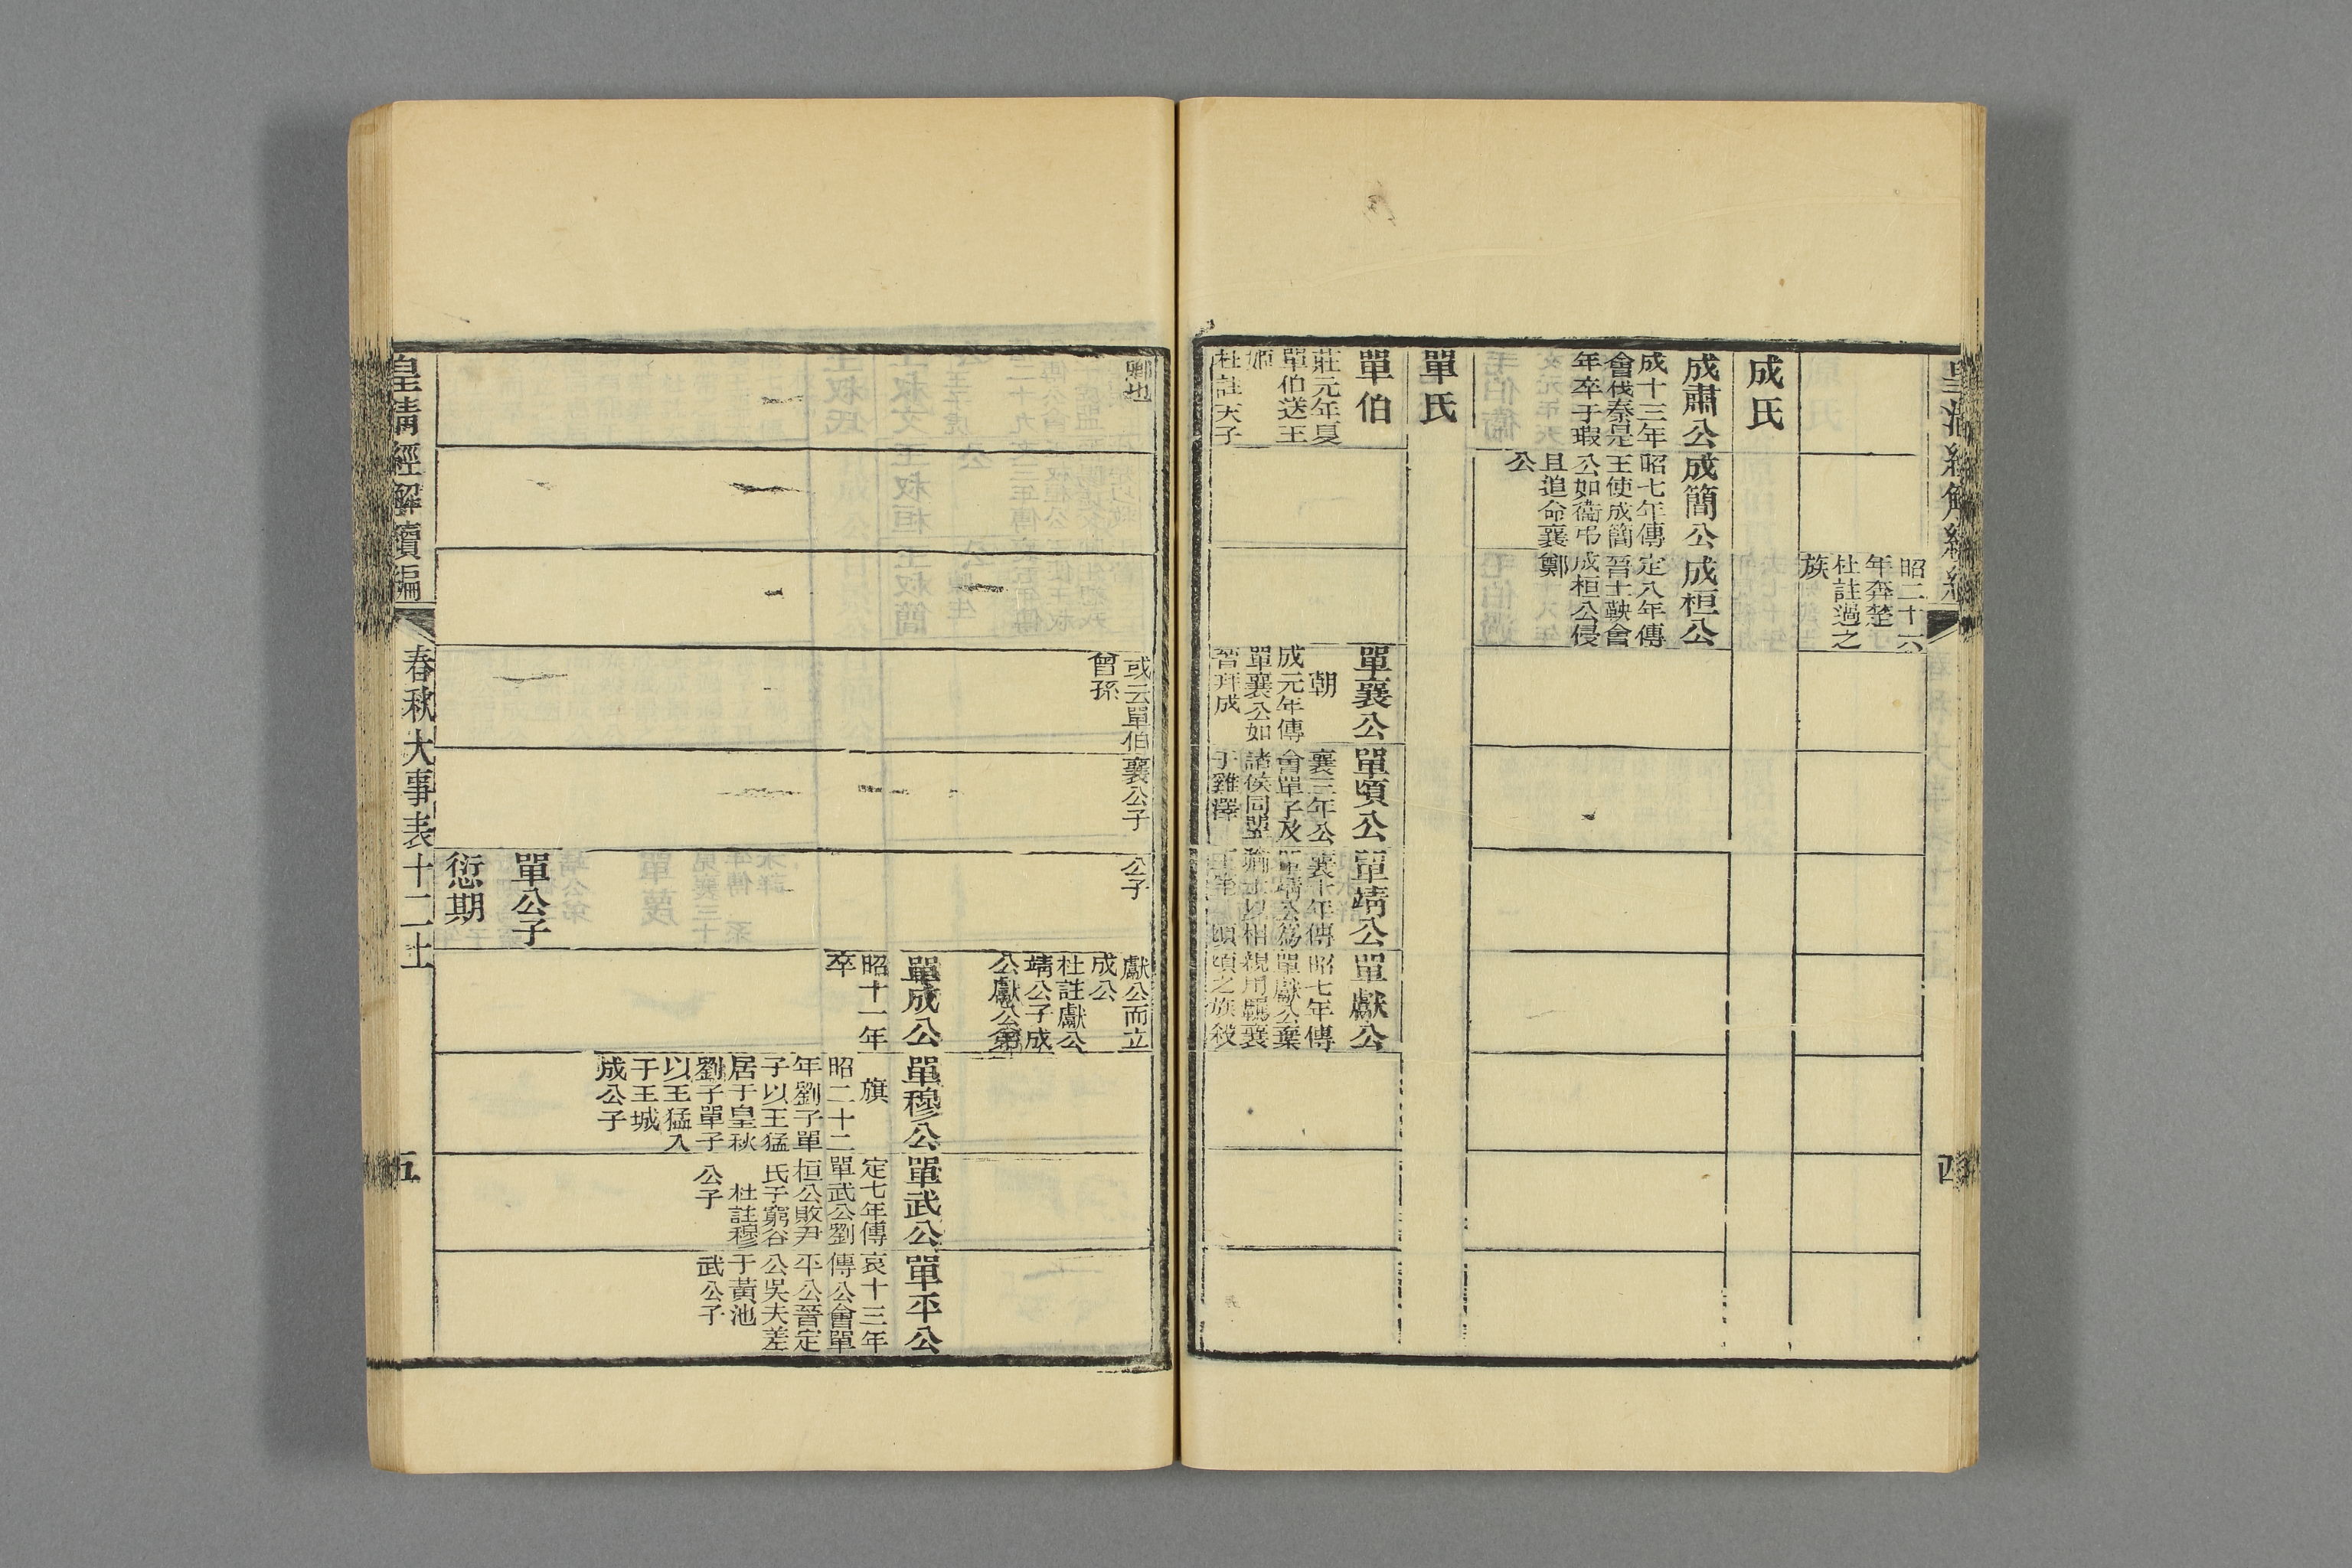 昭二十六
年奔楚
杜註過之
族
成氏
成肅公
成十三年
會伐秦是
年卒于瑕
成簡公
昭七年傳
王使成簡
公如衞弔
且追命襄
公
成桓公
定八年傳
晉士鞅會
成桓公侵
鄭
單氏
單伯
莊元年夏
單伯送王
姬
杜註天子
單襄公
朝
成元年傳
單襄公如
晉拜成
單頃公
襄三年公
會單子及
諸侯同盟
于雞澤
單靖公
襄十年傳
單靖公為
卿士以相
單獻公
昭七年傳
單獻公棄
親用羈襄
頃之族殺
四
卿也
或云單伯
曾孫
襄公子
公子
獻公而立
成公
杜註獻公
靖公子成
公獻公弟
單成公
昭十一年
卒
單穆公
旗
昭二十二
年劉子單
子以王猛
居于皇秋
劉子單子
以王猛入
于王城
成公子
單武公
定七年傳
單武公劉
桓公敗尹
氏于窮谷
杜註穆
公子
單平公
哀十三年
傳公會單
平公晉定
公吳夫差
于黃池
武公子
單公子
愆期
皇清經解續編
春秋大事表十二上
五